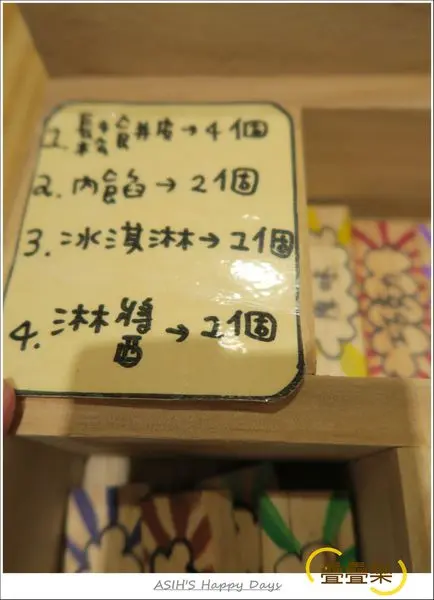 1. 鬆餅皮→4個
2. 內餡→2個
3. 冰淇淋→2個
4. 淋醬→2個
原味
ASIH'S Happy Days
疊疊樂